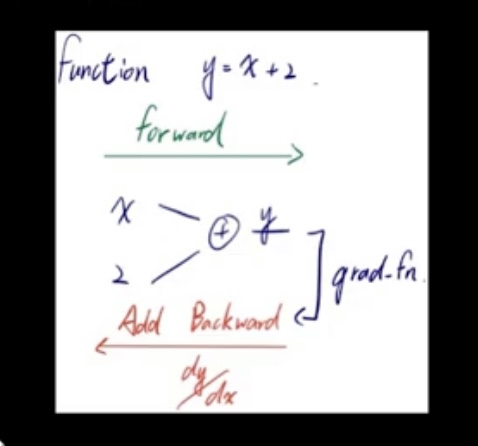 function y = x + 2 .
forward
x
+ y
2
grad-fn.
Add Backward
dy/dx